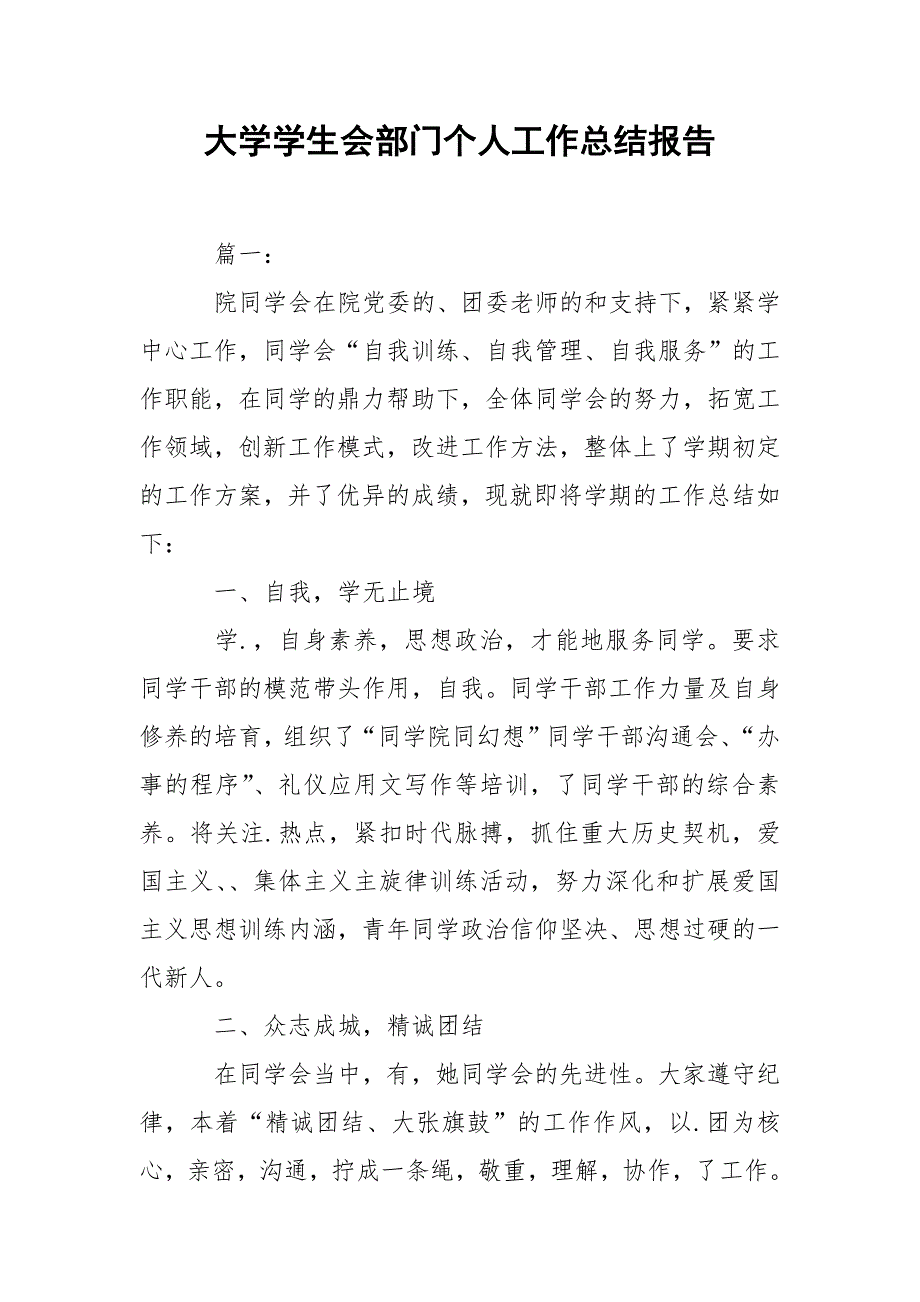 大学学生会部门个人工作总结报告
篇一：
院同学会在院党委的、团委老师的和支持下，紧紧学
中心工作，同学会“自我训练、自我管理、自我服务”的工
作职能，在同学的鼎力帮助下，全体同学会的努力，拓宽工
作领域，创新工作模式，改进工作方法，整体上了学期初定
的工作方案，并了优异的成绩，现就即将学期的工作总结如
下：
一、自我，学无止境
学.，自身素养，思想政治，才能地服务同学。要求
同学干部的模范带头作用，自我。同学干部工作力量及自身
修养的培育，组织了“同学院同幻想”同学干部沟通会、“办
事的程序”、礼仪应用文写作等培训，了同学干部的综合素
养。将关注.热点，紧扣时代脉搏，抓住重大历史契机，爱
国主义、、集体主义主旋律训练活动，努力深化和扩展爱国
主义思想训练内涵，青年同学政治信仰坚决、思想过硬的一
代新人。
二、众志成城，精诚团结
在同学会当中，有，她同学会的先进性。大家遵守纪
律，本着“精诚团结、大张旗鼓”的工作作风，以.团为核
心，亲密，沟通，拧成一条绳，敬重，理解，协作，了工作。